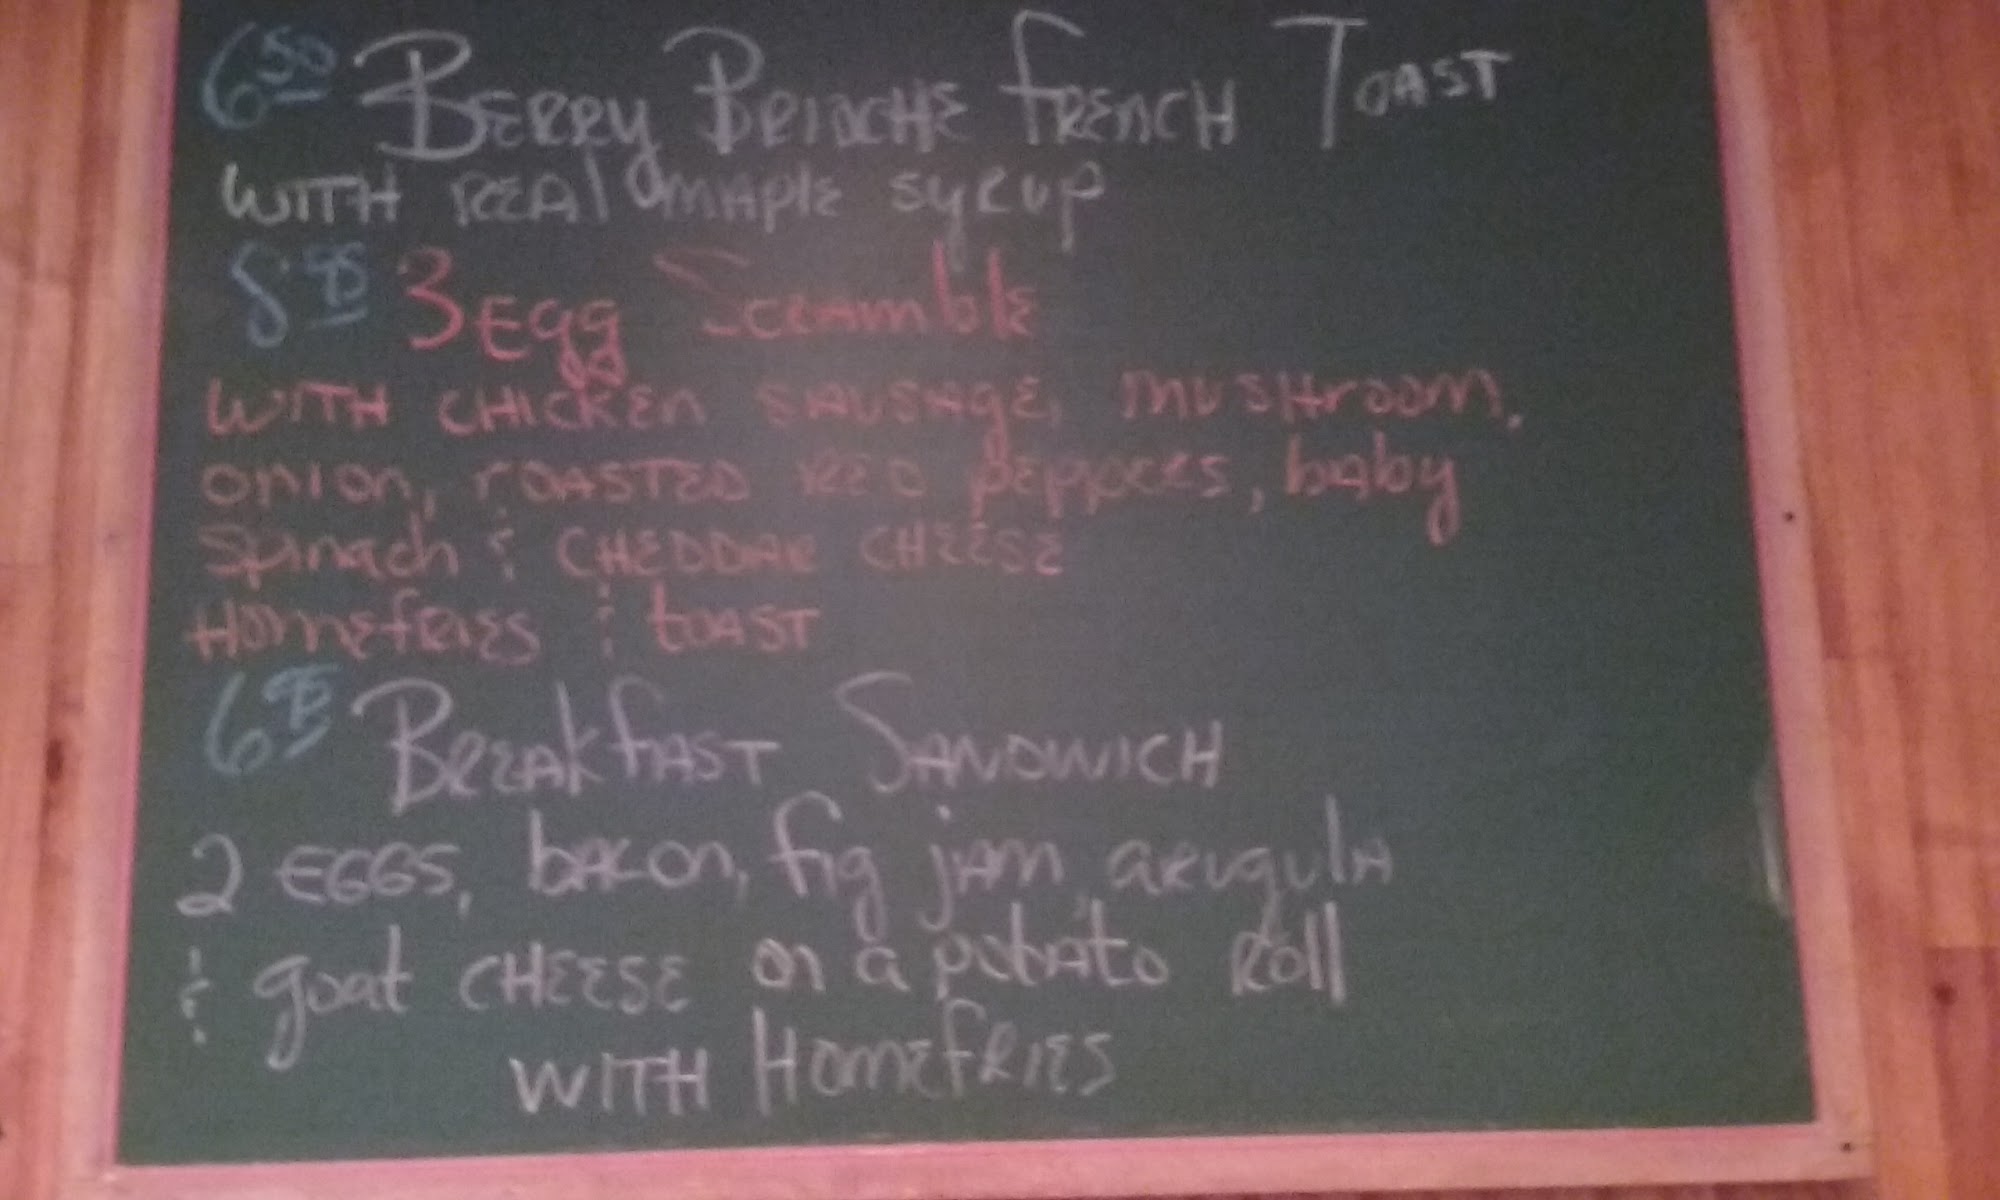 6 50 BERRY BRIOCHE FRENCH TOAST
WITH REAL MAPLE SYRUP
8.95 3 EGG SCRAMBLE
WITH CHICKEN SAUSAGE, MUSHROOM,
ONION, ROASTED RED PEPPERS, BABY
SPINACH & CHEDDAR CHEESE
HOMEFRIES & TOAST
6 95 BREAKFAST SANDWICH
2 EGGS, BACON, FIG JAM, ARUGULA
& GOAT CHEESE ON A POTATO ROLL
WITH HOMEFRIES